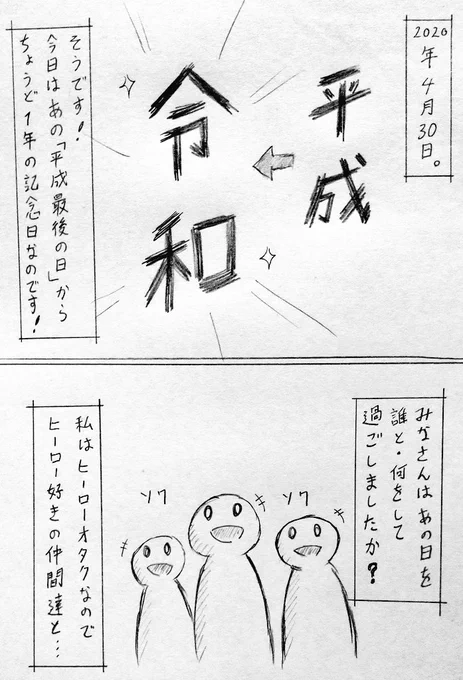 2020年4月30日。
平成
令和
そうです!
今日はあの「平成最後の日」から
ちょうど1年の記念日なのです!
みなさんはあの日を
誰と・何をして
過ごしましたか?
ソワ
ソワ
私はヒーローオタクなので
ヒーロー好きの仲間達と…